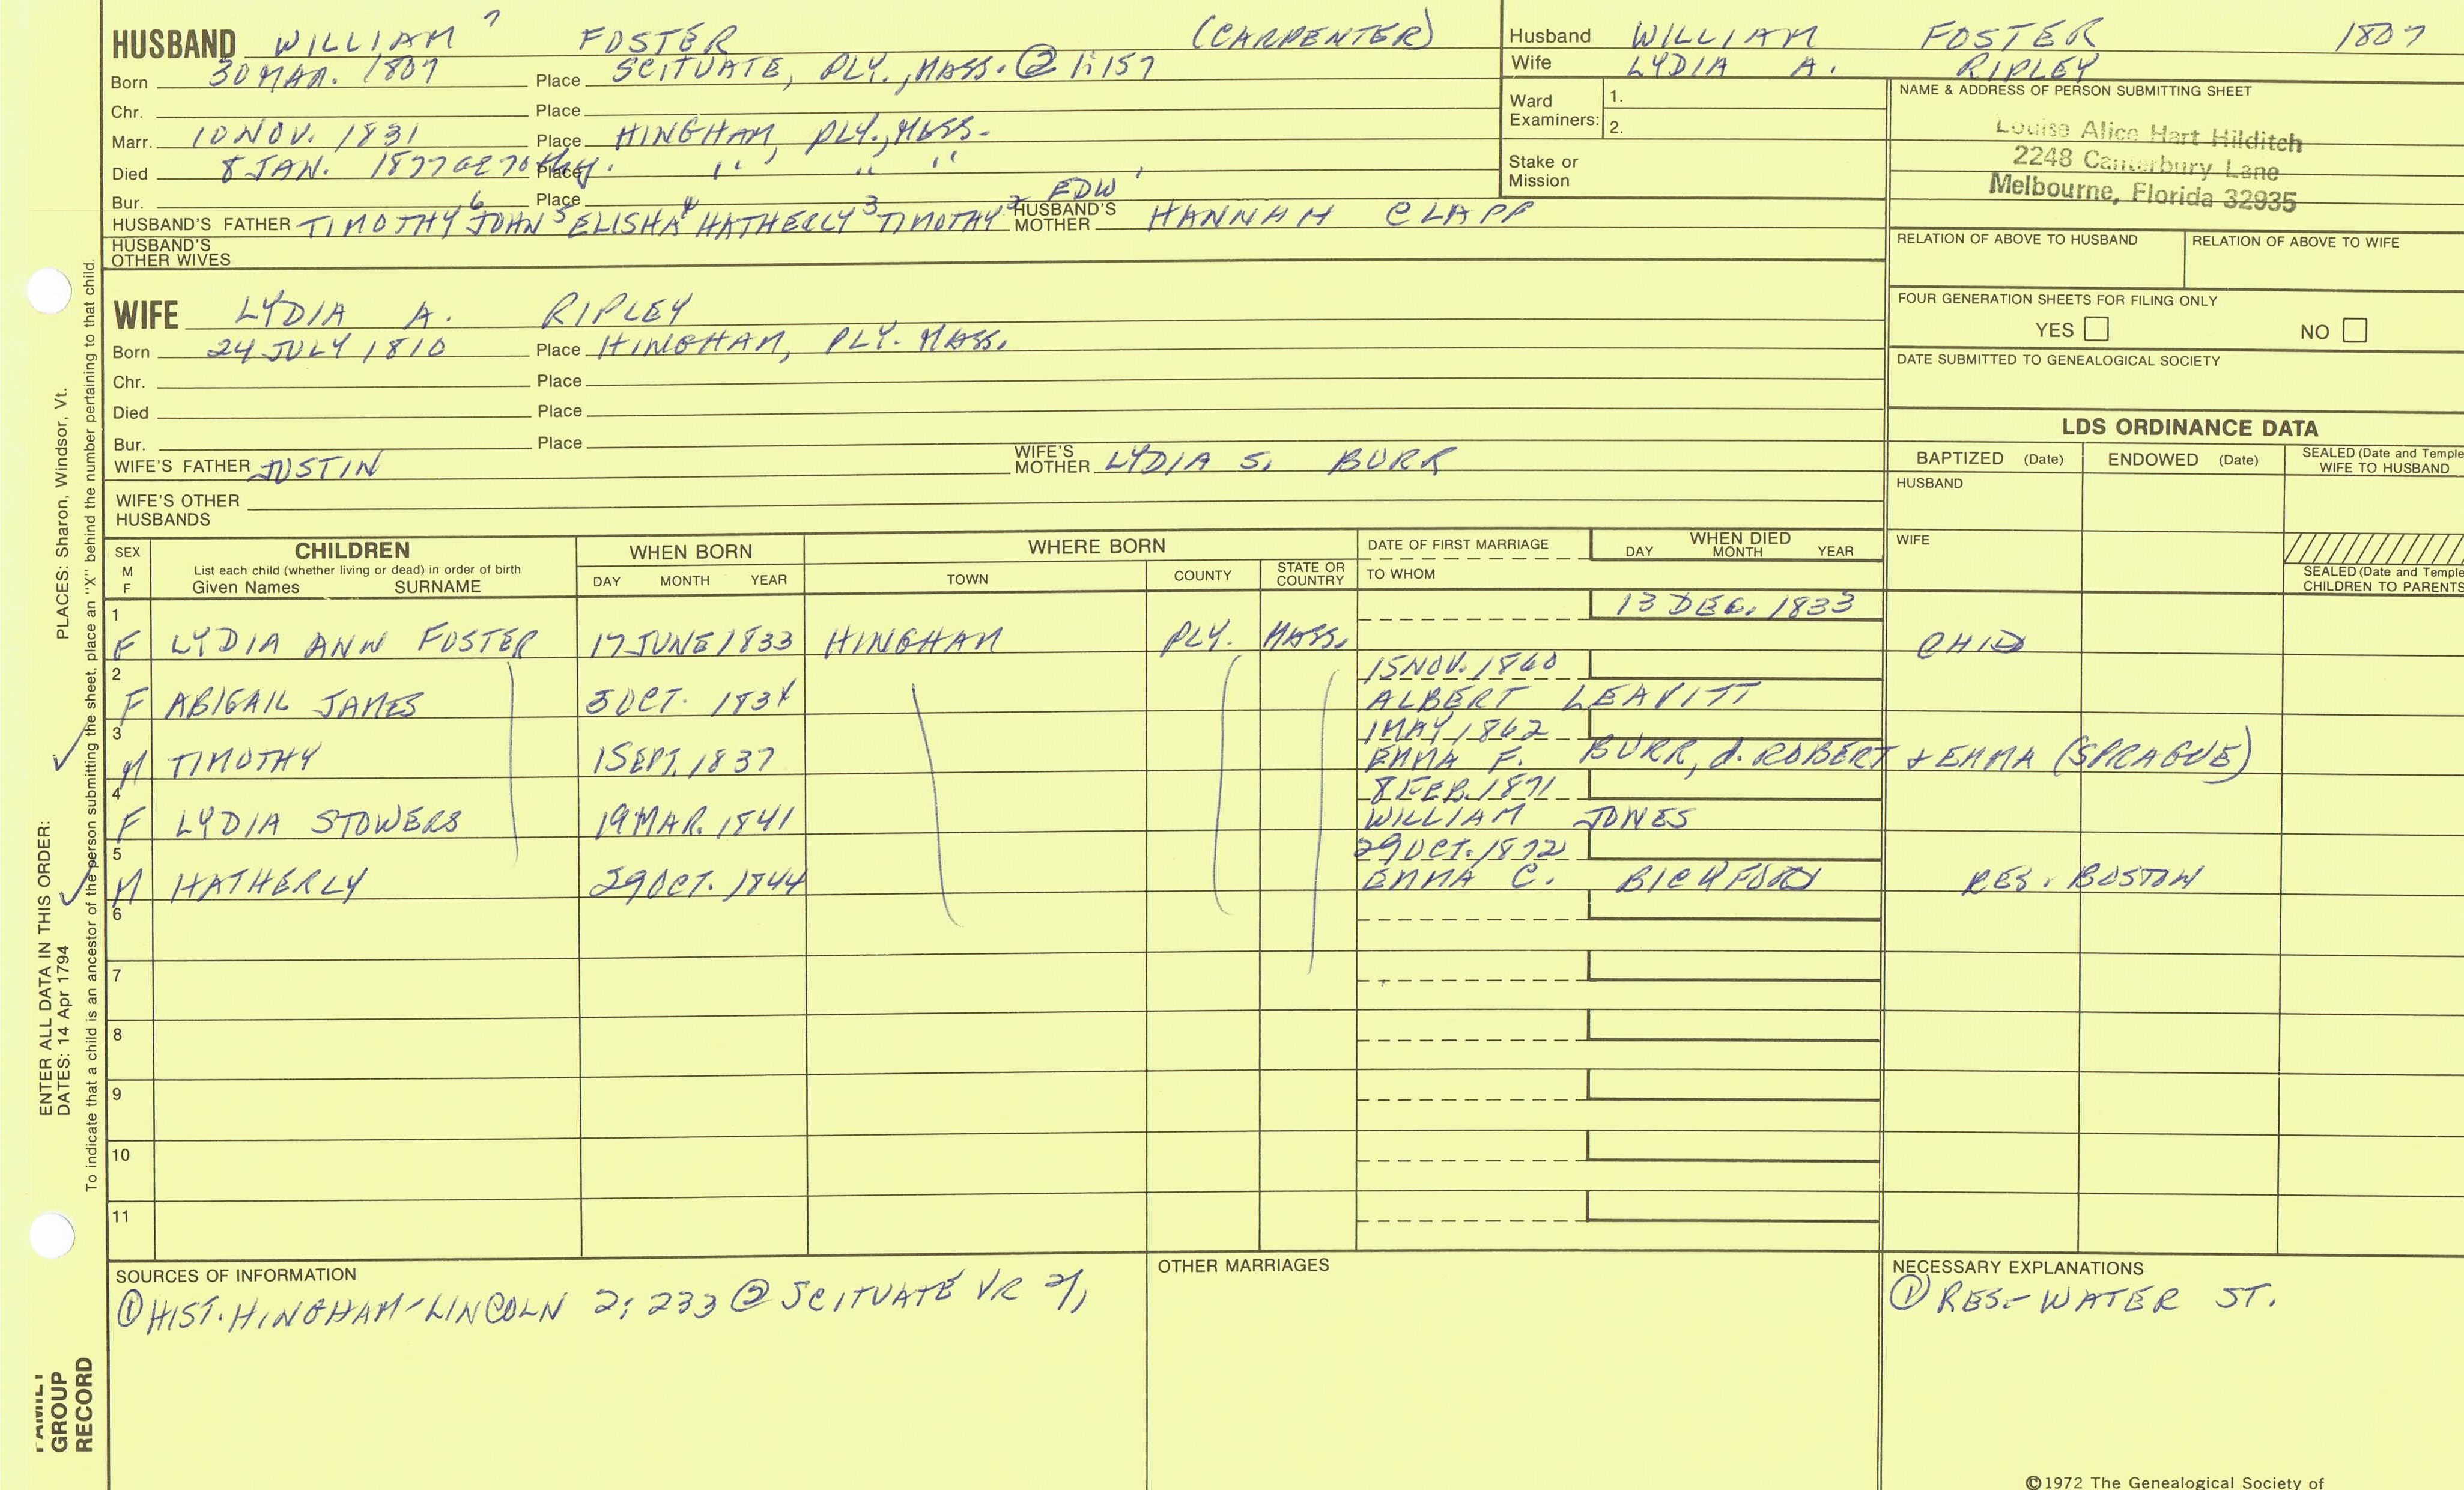 HUSBAND WILLIAM 7 FOSTER (CARPENTER)
Born 30 MAR. 1807 Place SCITUATE, PLY., MASS. ② 1:157
Chr. Place
Marr. 10 NOV. 1831 Place HINGHAM, PLY., MASS.
Died 8 JAN. 1877 Place " " "
Bur. Place
HUSBAND'S FATHER TIMOTHY 6 JOHN 5 ELISHA 4 HATHERLY 3 TIMOTHY 2 EDW 1 HUSBAND'S MOTHER HANNAH CLAPP
HUSBAND'S OTHER WIVES
Husband WILLIAM FOSTER 1807
Wife LYDIA A. RIPLEY
Ward Examiners: 1.
2.
Stake or Mission
NAME & ADDRESS OF PERSON SUBMITTING SHEET
Louise Alice Hart Hilditch
2248 Canterbury Lane
Melbourne, Florida 32935
RELATION OF ABOVE TO HUSBAND RELATION OF ABOVE TO WIFE
FOUR GENERATION SHEETS FOR FILING ONLY
YES NO
DATE SUBMITTED TO GENEALOGICAL SOCIETY
WIFE LYDIA A. RIPLEY
Born 24 JULY 1810 Place HINGHAM, PLY. MASS.
Chr. Place
Died Place
Bur. Place
WIFE'S FATHER JUSTIN WIFE'S MOTHER LYDIA S. BURR
WIFE'S OTHER HUSBANDS
LDS ORDINANCE DATA
BAPTIZED (Date) ENDOWED (Date) SEALED (Date and Temple) WIFE TO HUSBAND
HUSBAND
WIFE
SEALED (Date and Temple) CHILDREN TO PARENTS
SEX M F CHILDREN WHEN BORN WHERE BORN DATE OF FIRST MARRIAGE WHEN DIED
List each child (whether living or dead) in order of birth DAY MONTH YEAR
Given Names SURNAME DAY MONTH YEAR TOWN COUNTY STATE OR COUNTRY TO WHOM
1 13 DEC. 1833
F LYDIA ANN FOSTER 17 JUNE 1833 HINGHAM PLY. MASS.
2 15 NOV. 1860
F ABIGAIL JAMES 5 OCT. 1834 ALBERT LEAVITT
3 1 MAY 1862
M TIMOTHY 1 SEPT. 1837 EMMA F. BURR, d. ROBERT + EMMA (SPRAGUE)
4 8 FEB. 1871
F LYDIA STOWERS 19 MAR. 1841 WILLIAM JONES
5 29 OCT. 1872
M HATHERLY 29 OCT. 1844 EMMA C. BICKFORD RES. BOSTON
6
7
8
9
10
11
SOURCES OF INFORMATION
① HIST. HINGHAM-LINCOLN 2; 233 ② SCITUATE VR
OTHER MARRIAGES
NECESSARY EXPLANATIONS
① RES- WATER ST.
©1972 The Genealogical Society of
ENTER ALL DATA IN THIS ORDER:
DATES: 14 Apr 1794 PLACES: Sharon, Windsor, Vt.
To indicate that a child is an ancestor of the person submitting the sheet, place an "X" behind the number pertaining to that child.
FAMILY
GROUP
RECORD